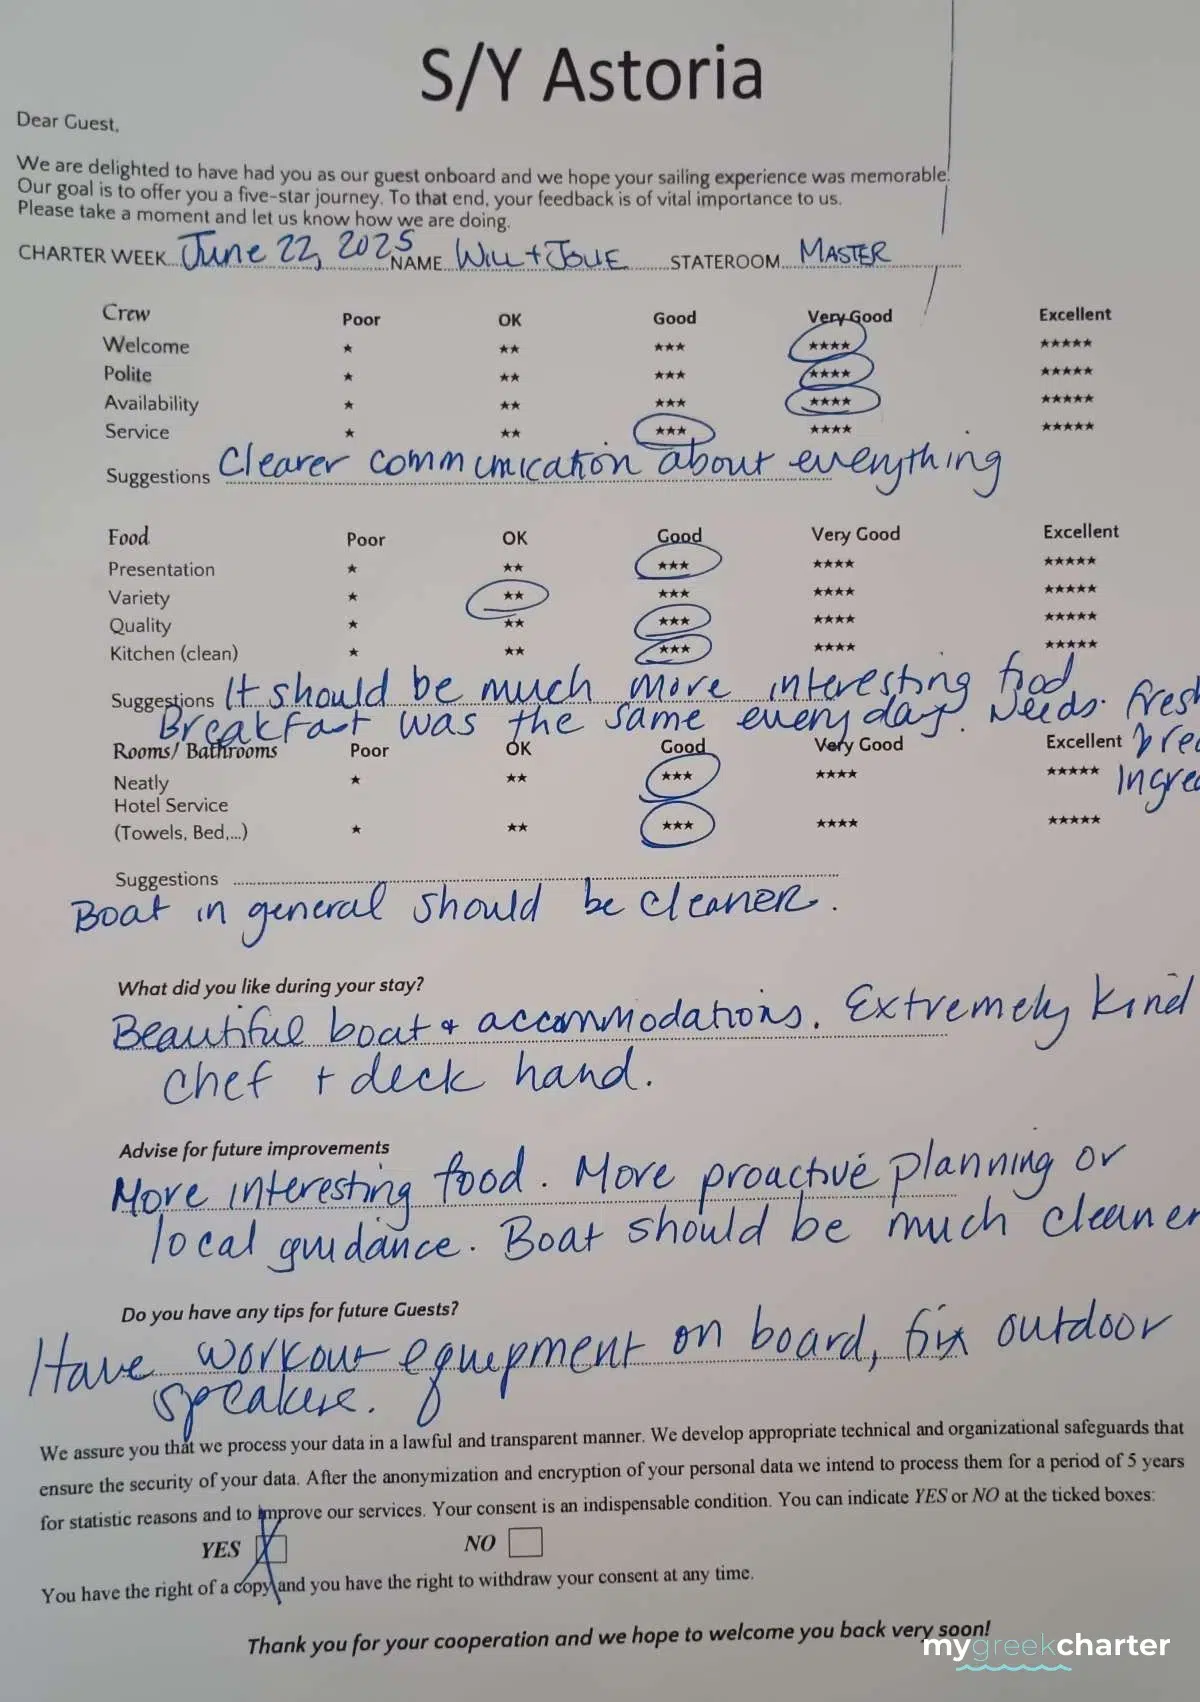 S/Y Astoria
Dear Guest,
We are delighted to have had you as our guest onboard and we hope your sailing experience was memorable!
Our goal is to offer you a five-star journey. To that end, your feedback is of vital importance to us.
Please take a moment and let us know how we are doing.
CHARTER WEEK June 22, 2025 NAME WILL + JOLIE STATEROOM MASTER
Crew Poor OK Good Very Good Excellent
Welcome ★ ★★ ★★★ ★★★★ ★★★★★
Polite ★ ★★ ★★★ ★★★★ ★★★★★
Availability ★ ★★ ★★★ ★★★★ ★★★★★
Service ★ ★★ ★★★ ★★★★ ★★★★★
Suggestions Clearer communication about everything
Food Poor OK Good Very Good Excellent
Presentation ★ ★★ ★★★ ★★★★ ★★★★★
Variety ★ ★★ ★★★ ★★★★ ★★★★★
Quality ★ ★★ ★★★ ★★★★ ★★★★★
Kitchen (clean) ★ ★★ ★★★ ★★★★ ★★★★★
Suggestions It should be much more interesting food
Breakfast was the same every day. Needs fresh
Rooms/ Bathrooms Poor OK Good Very Good Excellent
Neatly ★ ★★ ★★★ ★★★★ ★★★★★
Hotel Service
(Towels, Bed,...) ★ ★★ ★★★ ★★★★ ★★★★★
Suggestions
Boat in general should be cleaner.
What did you like during your stay?
Beautiful boat + accommodations. Extremely kind
chef + deck hand.
Advise for future improvements
More interesting food. More proactive planning or
local guidance. Boat should be much cleaner
Do you have any tips for future Guests?
Have workout equipment on board, fix outdoor
speakers.
We assure you that we process your data in a lawful and transparent manner. We develop appropriate technical and organizational safeguards that
ensure the security of your data. After the anonymization and encryption of your personal data we intend to process them for a period of 5 years
for statistic reasons and to improve our services. Your consent is an indispensable condition. You can indicate YES or NO at the ticked boxes:
YES NO
You have the right of a copy and you have the right to withdraw your consent at any time.
Thank you for your cooperation and we hope to welcome you back very soon!
mygreekcharter